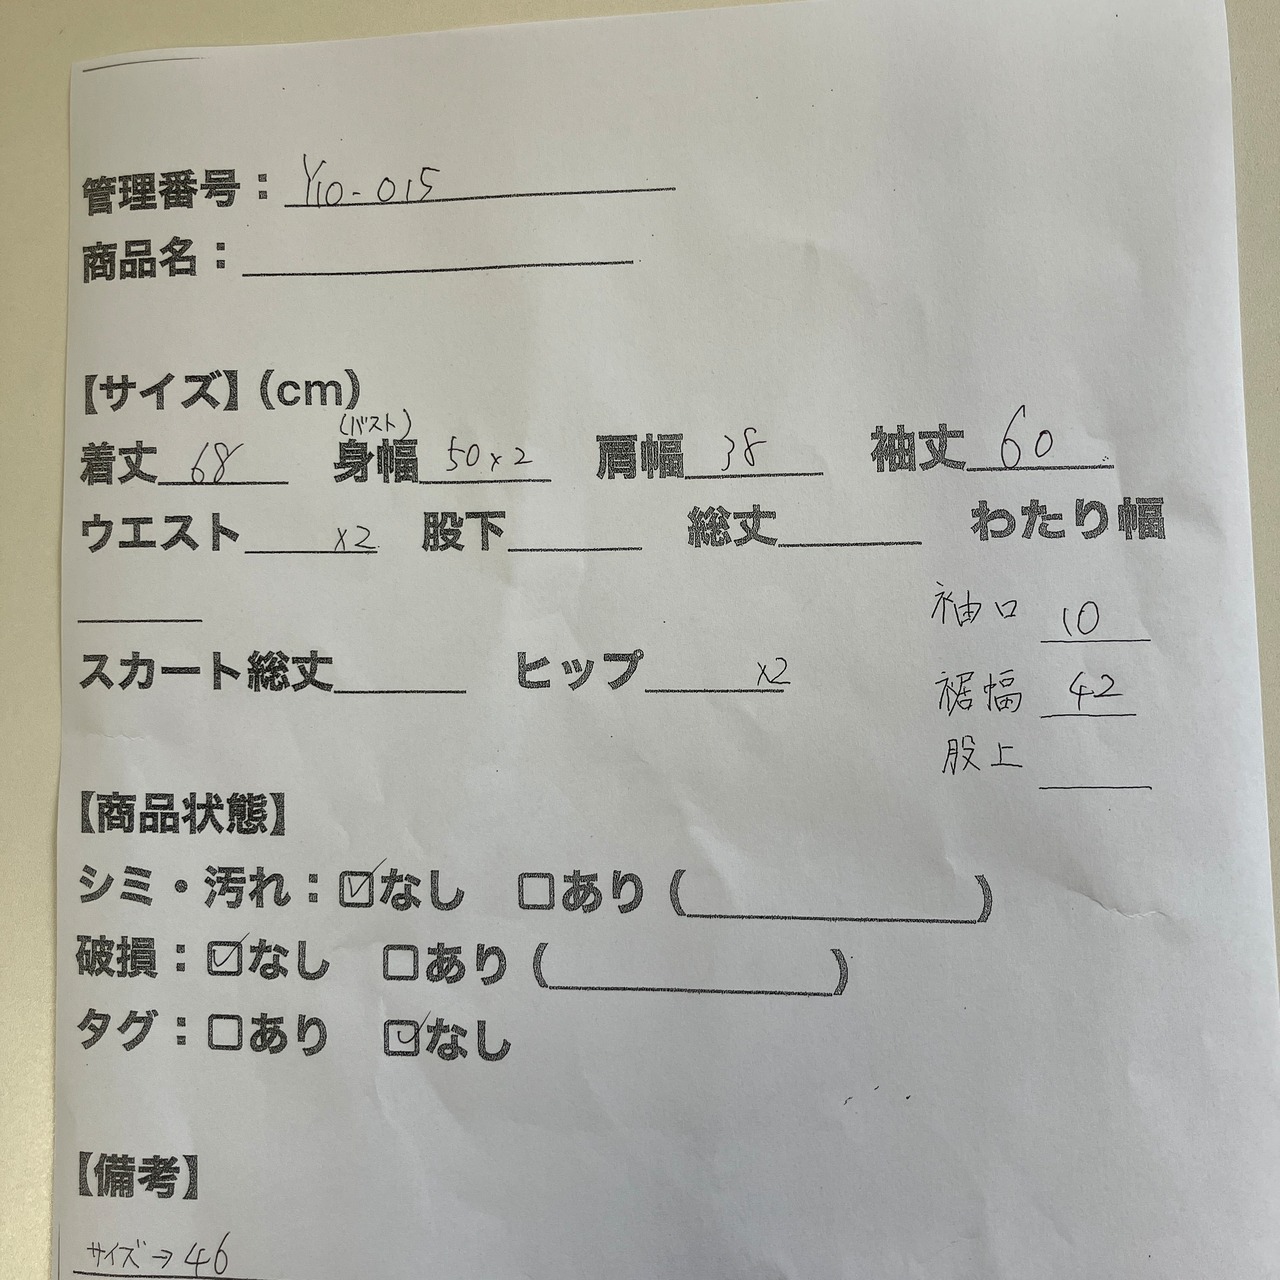 管理番号：Y10-015
商品名：
【サイズ】(cm)
(バスト)
着丈 68 身幅 50×2 肩幅 38 袖丈 60
ウエスト ×2 股下 総丈 わたり幅
袖口 10
スカート総丈 ヒップ ×2
裾幅 42
股上
【商品状態】
シミ・汚れ：☑なし □あり ( )
破損：☑なし □あり ( )
タグ：□あり ☑なし
【備考】
サイズ→46